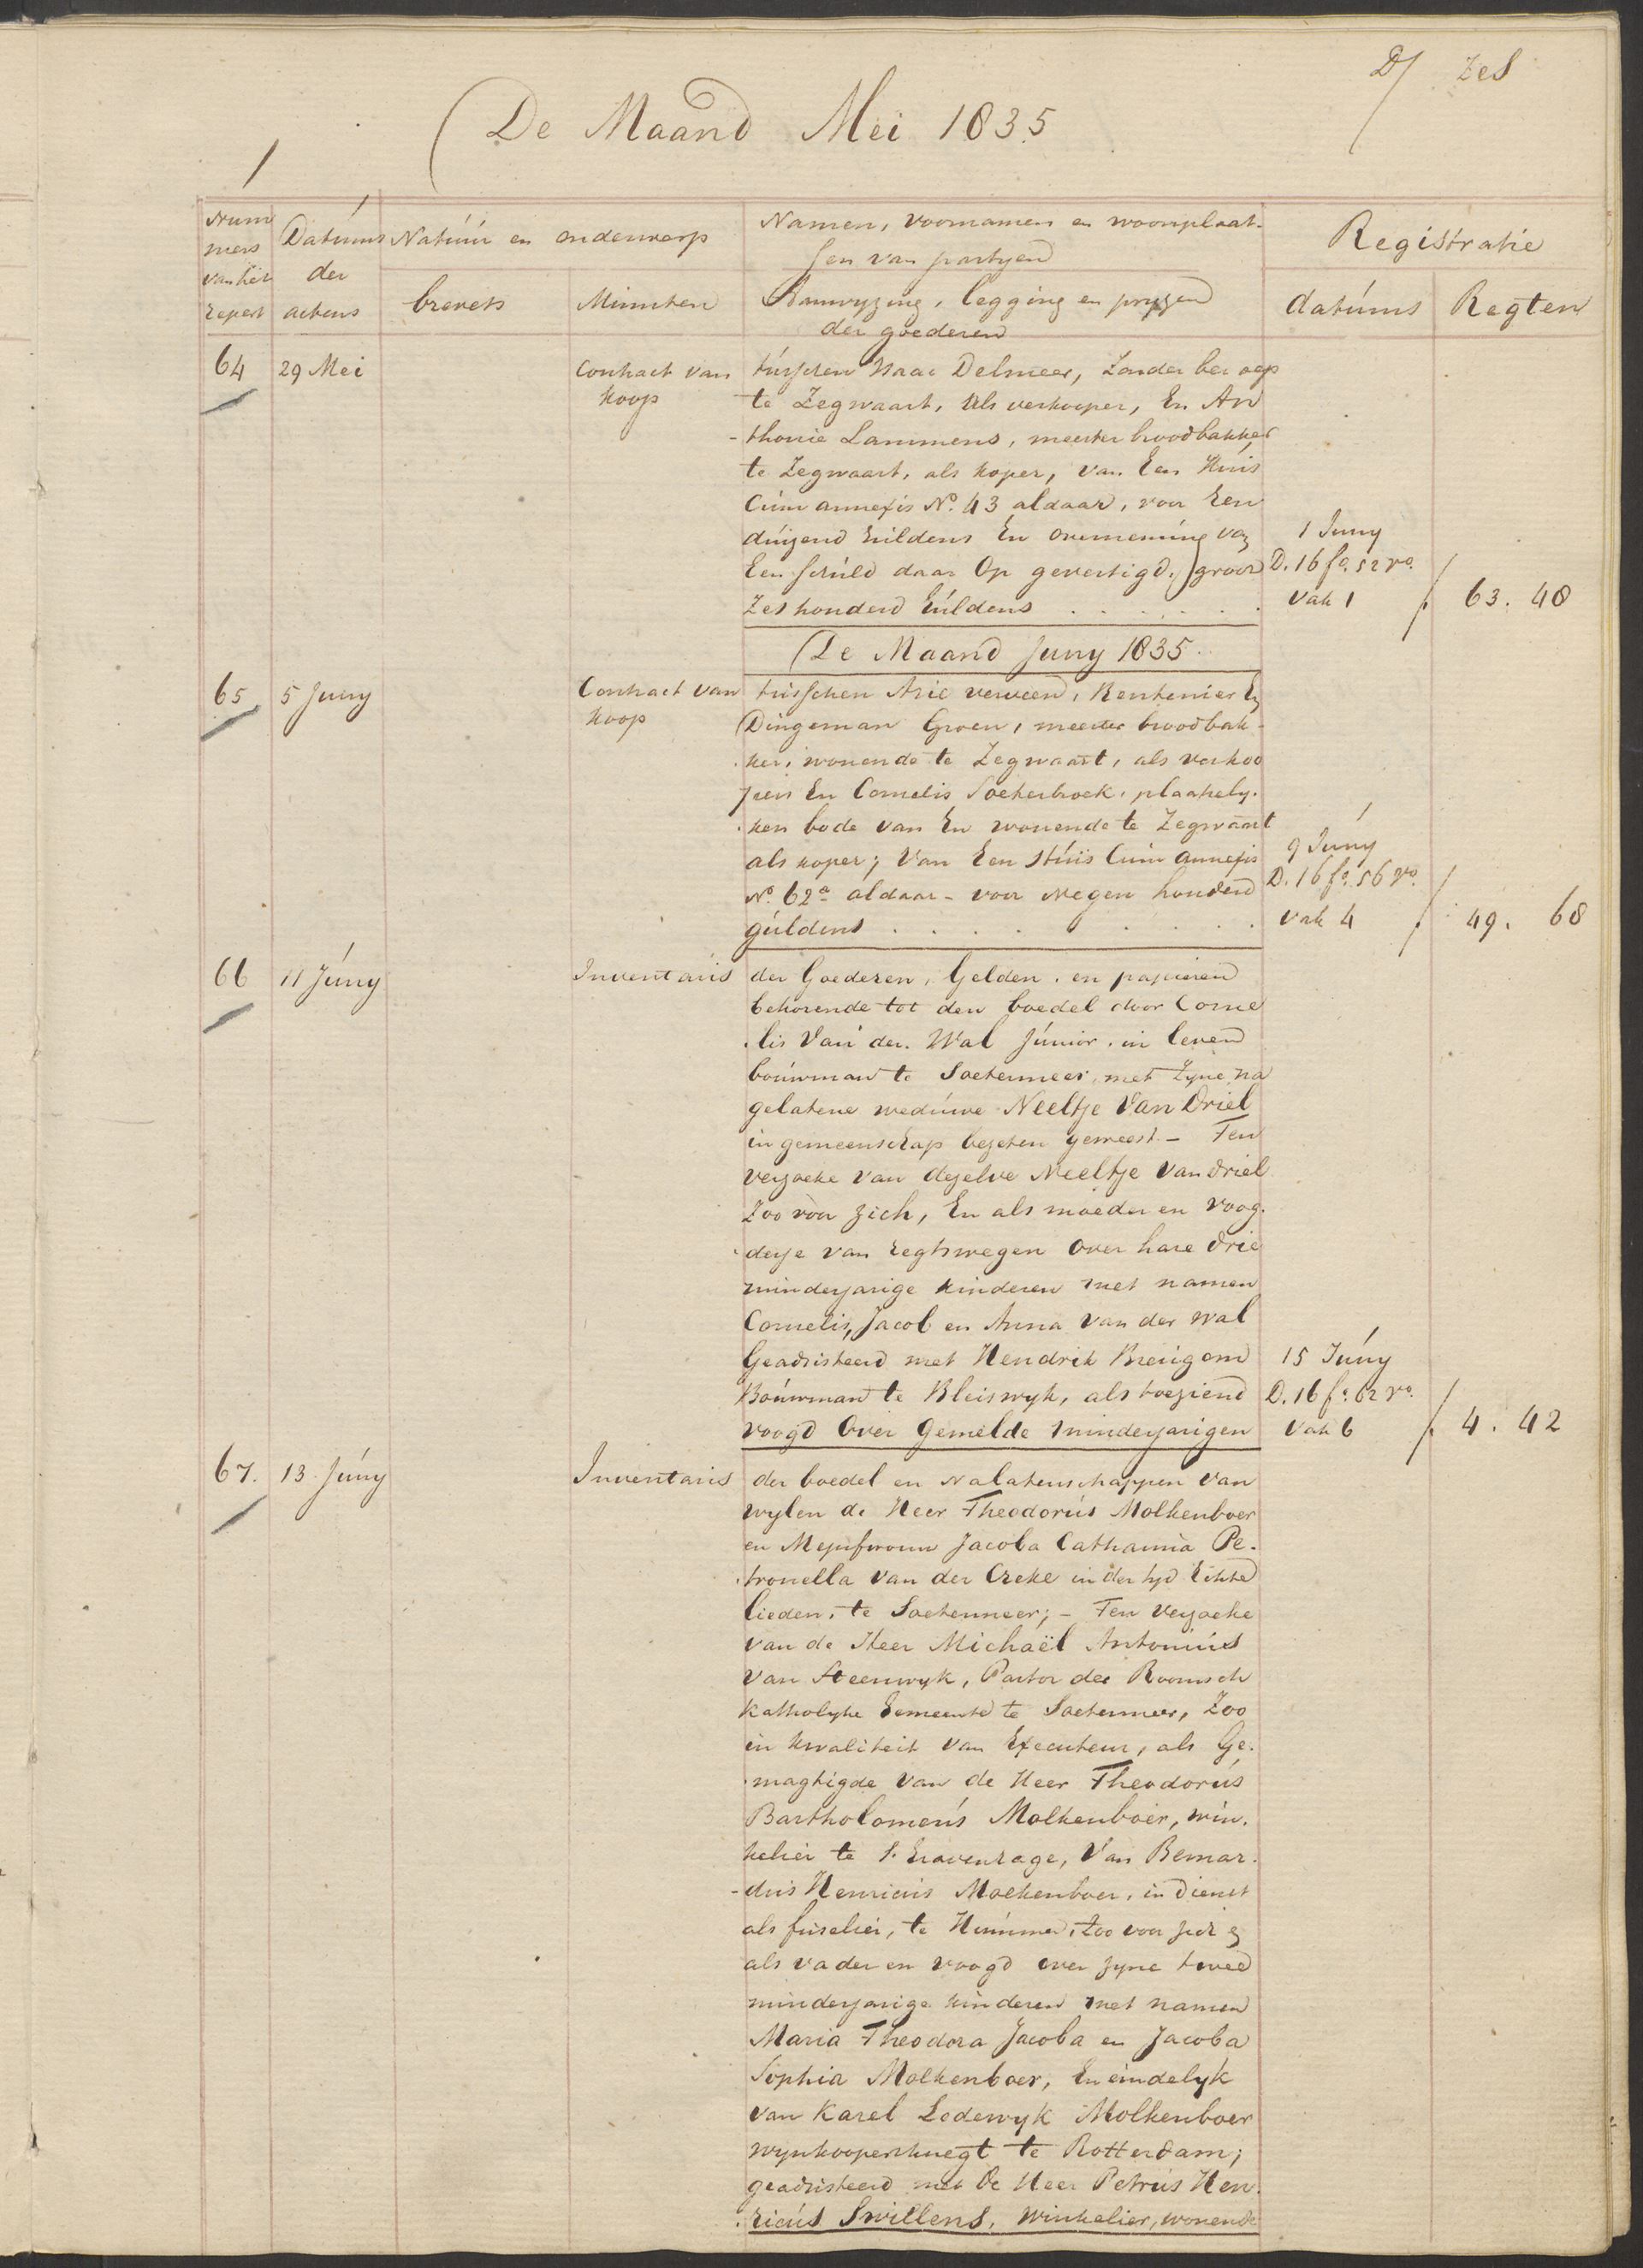 D/ Zes
De Maand Mei 1835
Num
mers
van het
repert
Datums
der
actens
Natuur en onderwerp
brevets
Minuten
Namen, voornamen en woonplaat-
sen van partyen
Aanwyzing, legging en pryzen
der goederen
Registratie
datums
Regten
64
29 Mei
Contract van
koop
tusschen Isaac Delmeer, Zonder beroep
te Zegwaart, als verkooper, En An
-thonie Lammens, meester broodbakker
te Zegwaart, als koper, van Een Huis
Cum annexis No. 43 aldaar, voor Een
duizend Guldens En overneming van
Een schuld daar Op gevestigd, groot
Zes honderd Guldens . . . . . .
1 Juny
D. 16 fo. 52 vo.
vak 1
f 63. 48
De Maand Juny 1835
65
5 Juny
Contract van
koop
tusschen Arie verveen, Rentenier En
Dingeman Groen, meester broodbak-
ker, wonende te Zegwaart, als verkoo
pers En Cornelis Soeterbroek, plaatsely-
ken bode van En wonende te Zegwaart
als koper; Van Een Huis Cum annexis
No. 62a aldaar - voor Negen honderd
guldens . . . . . . . .
9 Juny
D. 16 fo. 56 vo.
vak 4
f 49. 68
66
11 Juny
Inventaris
der Goederen, Gelden, en papieren
behorende tot den boedel door Corne
-lis Van der Wal Junior, in leven
bouwman te Soetermeer, met Zyne na
gelatene weduwe Neeltje Van Driel
in gemeenschap bezeten geweest - Ten
verzoeke van dezelve Neeltje Van Driel
Zoo voor zich, En als moeder en voog-
desse van regtswegen Over hare drie
minderjarige kinderen met namen
Cornelis, Jacob en Anna van der Wal
Geadsisteerd met Hendrik Breugom
Bouwman te Bleiswyk, als toeziend
voogd Over gemelde minderjarigen
15 Juny
D. 16 fo. 62 vo.
vak 6
f 4. 42
67.
13 Juny
Inventaris
der boedel en Nalatenschappen van
wylen de Heer Theodorus Molkenboer
en Mejufvrouw Jacoba Catharina Pe-
-tronella van der Creke in der tyd Echte
lieden, te Soetermeer; - Ten verzoeke
van de Heer Michaël Antonius
van Steenwyk, Pastor der Roomsch
Katholyke Gemeente te Soetermeer, Zoo
in kwaliteit van Executeur, als Ge-
-magtigde van de Heer Theodorus
Bartholomeus Molkenboer, win-
kelier te s Gravenhage, Van Bernar-
-dus Henricus Molkenboer, in dienst
als fuselier, te Hummen, Zoo voor zich en
als vader en voogd over zyne twee
minderjarige kinderen met namen
Maria Theodora Jacoba en Jacoba
Sophia Molkenboer, En eindelyk
van Karel Lodewyk Molkenboer
wynkoopersknegt te Rotterdam;
geadsisteerd met de Heer Petrus Hen-
-ricus Swillens, Winkelier, wonende